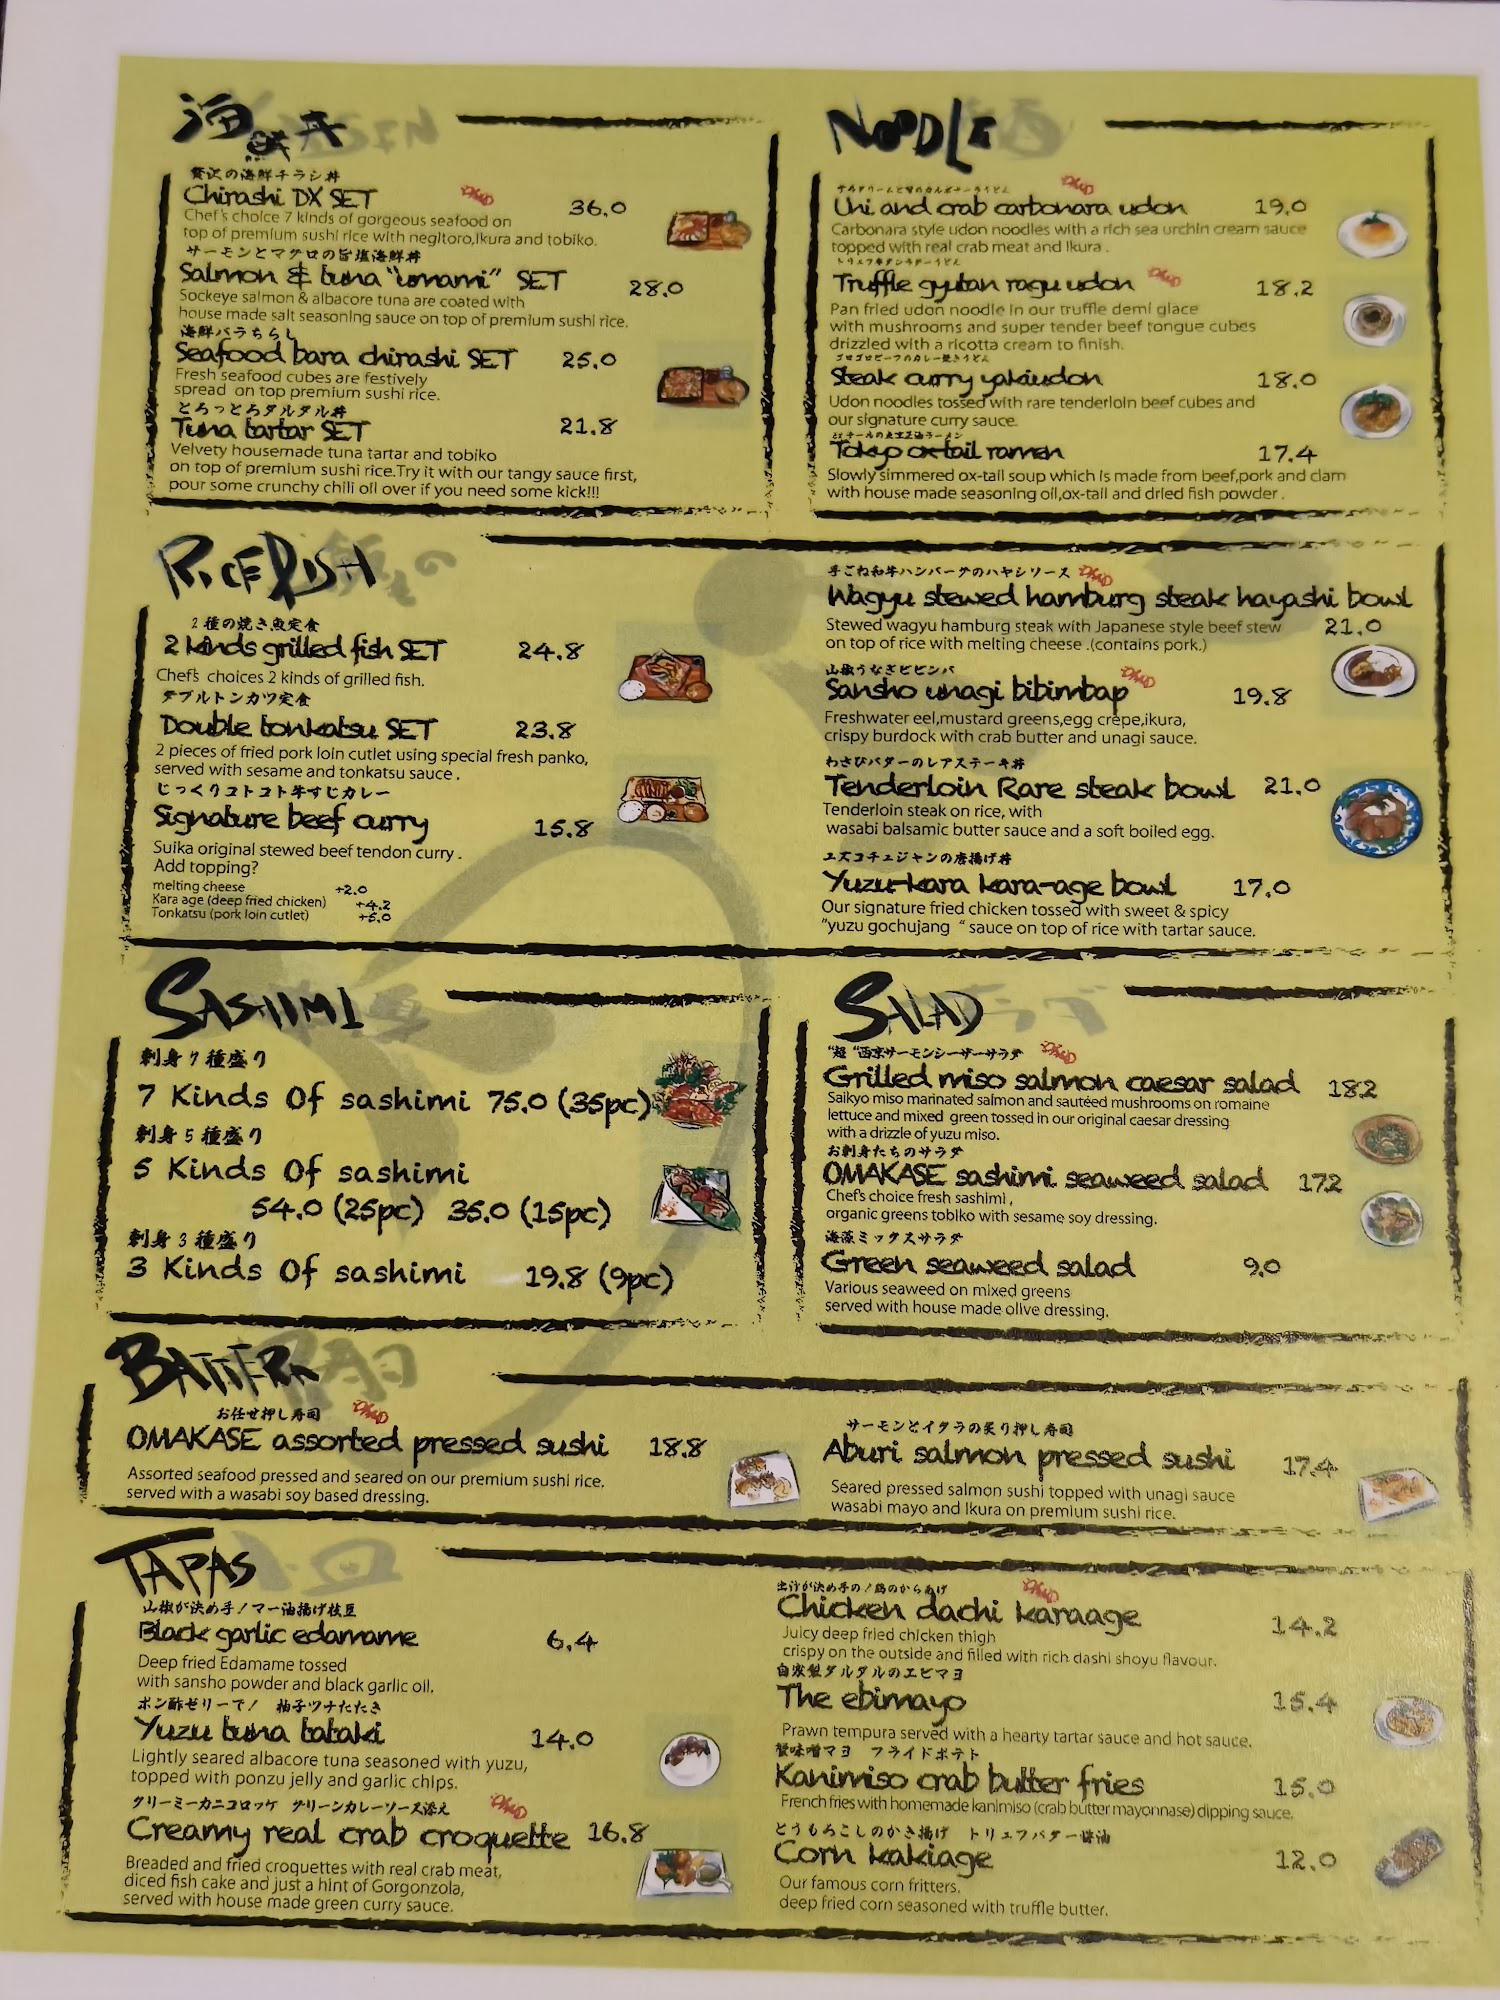 海鮮丼
贅沢の海鮮チラシ丼
Chirashi DX SET 36.0
Chef's choice 7 kinds of gorgeous seafood on
top of premium sushi rice with negitoro,Ikura and tobiko.
サーモンとマグロの旨塩海鮮丼
Salmon & tuna "umami" SET 28.0
Sockeye salmon & albacore tuna are coated with
house made salt seasoning sauce on top of premium sushi rice.
海鮮バラちらし
Seafood bara chirashi SET 25.0
Fresh seafood cubes are festively
spread on top premium sushi rice.
とろっとろタルタル丼
Tuna tartar SET 21.8
Velvety housemade tuna tartar and tobiko
on top of premium sushi rice.Try it with our tangy sauce first,
pour some crunchy chili oil over if you need some kick!!!
NOODLE
Uni and crab carbonara udon 19.0
Carbonara style udon noodles with a rich sea urchin cream sauce
topped with real crab meat and Ikura .
トリュフ牛タンラグーうどん
Truffle gyutan ragu udon 18.2
Pan fried udon noodle in our truffle demi glace
with mushrooms and super tender beef tongue cubes
drizzled with a ricotta cream to finish.
ゴロゴロビーフのカレー焼きうどん
Steak curry yakiudon 18.0
Udon noodles tossed with rare tenderloin beef cubes and
our signature curry sauce.
Tokyo ox-tail ramen 17.4
Slowly simmered ox-tail soup which is made from beef,pork and clam
with house made seasoning oil,ox-tail and dried fish powder .
RICE DISH
2種の焼き魚定食
2 kinds grilled fish SET 24.8
Chef's choices 2 kinds of grilled fish.
ダブルトンカツ定食
Double tonkatsu SET 23.8
2 pieces of fried pork loin cutlet using special fresh panko,
served with sesame and tonkatsu sauce .
じっくりコトコト牛すじカレー
Signature beef curry 15.8
Suika original stewed beef tendon curry .
Add topping?
melting cheese +2.0
Kara age (deep fried chicken) +4.2
Tonkatsu (pork loin cutlet) +5.0
手ごね和牛ハンバーグのハヤシソース
Wagyu stewed hamburg steak hayashi bowl
Stewed wagyu hamburg steak with Japanese style beef stew 21.0
on top of rice with melting cheese .(contains pork.)
山椒うなぎビビンバ
Sansho unagi bibimbap 19.8
Freshwater eel,mustard greens,egg crepe,ikura,
crispy burdock with crab butter and unagi sauce.
わさびバターのレアステーキ丼
Tenderloin Rare steak bowl 21.0
Tenderloin steak on rice, with
wasabi balsamic butter sauce and a soft boiled egg.
ユズコチュジャンの唐揚げ丼
Yuzu-kara kara-age bowl 17.0
Our signature fried chicken tossed with sweet & spicy
"yuzu gochujang " sauce on top of rice with tartar sauce.
SASHIMI
刺身7種盛り
7 Kinds Of sashimi 75.0 (35pc)
刺身5種盛り
5 Kinds Of sashimi
54.0 (25pc) 35.0 (15pc)
刺身3種盛り
3 Kinds Of sashimi 19.8 (9pc)
SALAD
"超"西京サーモンシーザーサラダ
Grilled miso salmon caesar salad 18.2
Saikyo miso marinated salmon and sautéed mushrooms on romaine
lettuce and mixed green tossed in our original caesar dressing
with a drizzle of yuzu miso.
お刺身たちのサラダ
OMAKASE sashimi seaweed salad 17.2
Chef's choice fresh sashimi ,
organic greens tobiko with sesame soy dressing.
海藻ミックスサラダ
Green seaweed salad 9.0
Various seaweed on mixed greens
served with house made olive dressing.
BATTERA
お任せ押し寿司
OMAKASE assorted pressed sushi 18.8
Assorted seafood pressed and seared on our premium sushi rice.
served with a wasabi soy based dressing.
サーモンとイクラの炙り押し寿司
Aburi salmon pressed sushi 17.4
Seared pressed salmon sushi topped with unagi sauce
wasabi mayo and Ikura on premium sushi rice.
TAPAS
山椒が決め手!マー油揚げ枝豆
Black garlic edamame 6.4
Deep fried Edamame tossed
with sansho powder and black garlic oil.
ポン酢ゼリーで! 柚子ツナたたき
Yuzu tuna tataki 14.0
Lightly seared albacore tuna seasoned with yuzu,
topped with ponzu jelly and garlic chips.
クリーミーカニコロッケ グリーンカレーソース添え
Creamy real crab croquette 16.8
Breaded and fried croquettes with real crab meat,
diced fish cake and just a hint of Gorgonzola,
served with house made green curry sauce.
出汁が決め手の!鶏のからあげ
Chicken dachi karaage 14.2
Juicy deep fried chicken thigh
crispy on the outside and filled with rich dashi shoyu flavour.
自家製タルタルのエビマヨ
The ebimayo 15.4
Prawn tempura served with a hearty tartar sauce and hot sauce.
蟹味噌マヨ フライドポテト
Kanimiso crab butter fries 15.0
French fries with homemade kanimiso (crab butter mayonnase) dipping sauce.
とうもろこしのかき揚げ トリュフバター醤油
Corn kakiage 12.0
Our famous corn fritters,
deep fried corn seasoned with truffle butter.